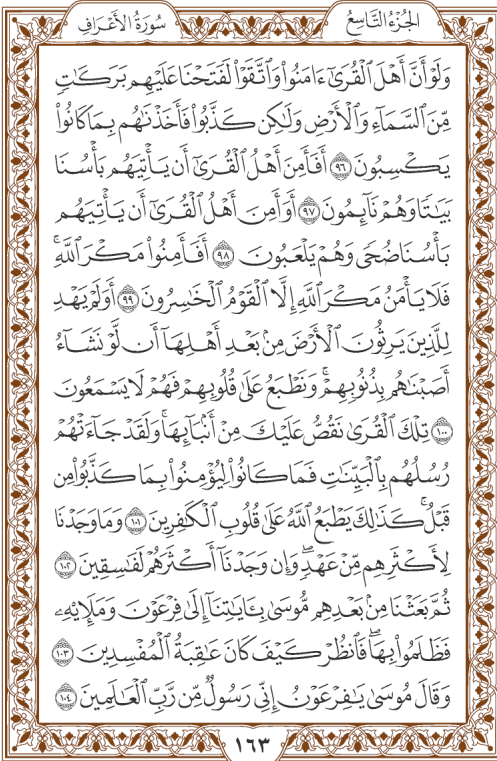 الجزء التاسع
سورة الأعراف
وَلَوۡ أَنَّ أَهۡلَ ٱلۡقُرَىٰٓ ءَامَنُواْ وَٱتَّقَوۡاْ لَفَتَحۡنَا عَلَيۡهِم بَرَكَٰتٖ
مِّنَ ٱلسَّمَآءِ وَٱلۡأَرۡضِ وَلَٰكِن كَذَّبُواْ فَأَخَذۡنَٰهُم بِمَا كَانُواْ
يَكۡسِبُونَ ٩٦ أَفَأَمِنَ أَهۡلُ ٱلۡقُرَىٰٓ أَن يَأۡتِيَهُم بَأۡسُنَا
بَيَٰتٗا وَهُمۡ نَآئِمُونَ ٩٧ أَوَأَمِنَ أَهۡلُ ٱلۡقُرَىٰٓ أَن يَأۡتِيَهُم
بَأۡسُنَا ضُحٗى وَهُمۡ يَلۡعَبُونَ ٩٨ أَفَأَمِنُواْ مَكۡرَ ٱللَّهِۚ
فَلَا يَأۡمَنُ مَكۡرَ ٱللَّهِ إِلَّا ٱلۡقَوۡمُ ٱلۡخَٰسِرُونَ ٩٩ أَوَلَمۡ يَهۡدِ
لِلَّذِينَ يَرِثُونَ ٱلۡأَرۡضَ مِنۢ بَعۡدِ أَهۡلِهَآ أَن لَّوۡ نَشَآءُ
أَصَبۡنَٰهُم بِذُنُوبِهِمۡۚ وَنَطۡبَعُ عَلَىٰ قُلُوبِهِمۡ فَهُمۡ لَا يَسۡمَعُونَ
١٠٠ تِلۡكَ ٱلۡقُرَىٰ نَقُصُّ عَلَيۡكَ مِنۡ أَنۢبَآئِهَاۚ وَلَقَدۡ جَآءَتۡهُمۡ
رُسُلُهُم بِٱلۡبَيِّنَٰتِ فَمَا كَانُواْ لِيُؤۡمِنُواْ بِمَا كَذَّبُواْ مِن
قَبۡلُۚ كَذَٰلِكَ يَطۡبَعُ ٱللَّهُ عَلَىٰ قُلُوبِ ٱلۡكَٰفِرِينَ ١٠١ وَمَا وَجَدۡنَا
لِأَكۡثَرِهِم مِّنۡ عَهۡدٖۖ وَإِن وَجَدۡنَآ أَكۡثَرَهُمۡ لَفَٰسِقِينَ ١٠٢
ثُمَّ بَعَثۡنَا مِنۢ بَعۡدِهِم مُّوسَىٰ بِـَٔايَٰتِنَآ إِلَىٰ فِرۡعَوۡنَ وَمَلَإِيْهِۦ
فَظَلَمُواْ بِهَاۖ فَٱنظُرۡ كَيۡفَ كَانَ عَٰقِبَةُ ٱلۡمُفۡسِدِينَ ١٠٣
وَقَالَ مُوسَىٰ يَٰفِرۡعَوۡنُ إِنِّي رَسُولٞ مِّن رَّبِّ ٱلۡعَٰلَمِينَ ١٠٤
١٦٣